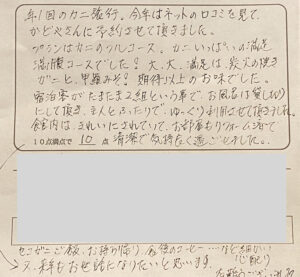 年1回のカニ旅行。今年はネットの口コミを見て
かどやさんに予約させて頂きました。
プランはカニのフルコース。カニいっぱいの満足
満腹コースでした! 大、大、満足は、炭火の焼き
ガニと、甲羅みそ! 期待以上のお味でした。
宿泊客がたまたま2組という事で、お風呂は貸し切り
にして頂き、主人とふたりで、ゆっくり利用させて頂きました。
館内は、きれいにされていて、お部屋もリフォーム済で
10点満点で 10 点 清潔で気持ちよく過ごせました。
セコガニご飯、お持ち帰り 食後のコーヒー……など細かい
心配り
又、来年もお世話になりたいと思います。
有難うございました